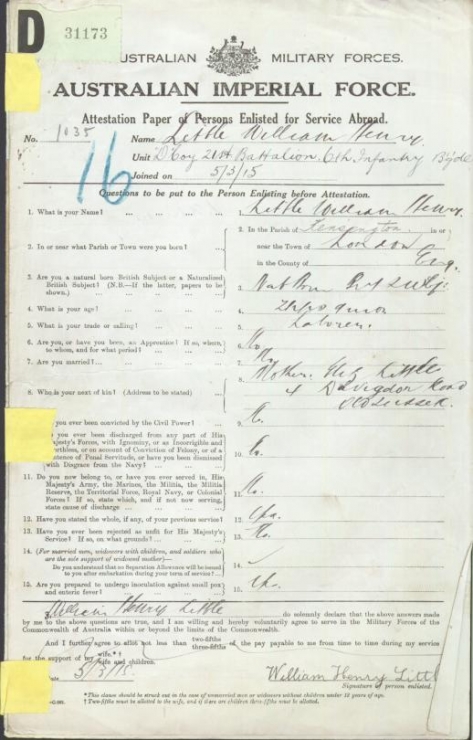 D
31173
AUSTRALIAN MILITARY FORCES.
AUSTRALIAN IMPERIAL FORCE.
Attestation Paper of Persons Enlisted for Service Abroad.
No. 1035 Name Little William Henry
16
Unit D Coy 21st Battalion, 6th Infantry Bgde
Joined on 5/3/15
Questions to be put to the Person Enlisting before Attestation.
1. What is your Name? ... ... ... 1. Little William Henry.
2. In or near what Parish or Town were you born? ... 2. In the Parish of Kensington in or
near the Town of London
in the County of Eng.
3. Are you a natural born British Subject or a Naturalised
British Subject? (N.B.—If the latter, papers to be
shown.) ... ... 3. Nat Born Brit Subj.
4. What is your age? ... ... ... 4.
5. What is your trade or calling? ... ... 5. Laborer.
6. Are you, or have you been, an Apprentice? If so, where,
to whom, and for what period? ... ... 6. No
7. Are you married? ... ... ... 7. No
8. Who is your next of kin? (Address to be stated) 8. Mother. Little
Road
9. you ever been convicted by the Civil Power? ... 9.
10. you ever been discharged from any part of His
Majesty's Forces, with Ignominy, or as Incorrigible and
orthless, or on account of Conviction of Felony, or of a
ntence of Penal Servitude, or have you been dismissed
with Disgrace from the Navy? ... 10.
11. Do you now belong to, or have you ever served in, His
Majesty's Army, the Marines, the Militia, the Militia
Reserve, the Territorial Force, Royal Navy, or Colonial
Forces? If so, state which, and if not now serving,
state cause of discharge ... 11. No.
12. Have you stated the whole, if any, of your previous service? 12. Yes.
13. Have you ever been rejected as unfit for His Majesty's
Service? If so, on what grounds? ... 13. No.
14. (For married men, widowers with children, and soldiers who
are the sole support of widowed mother—
Do you understand that no Separation Allowance will be issued
to you after embarkation during your term of service? ... 14.
15. Are you prepared to undergo inoculation against small pox
and enteric fever? ... ... 15. Yes.
William Henry Little do solemnly declare that the above answers made
by me to the above questions are true, and I am willing and hereby voluntarily agree to serve in the Military Forces of the
Commonwealth of Australia within or beyond the limits of the Commonwealth.
And I further agree to allot not less than two-fifths three-fifths of the pay payable to me from time to time during my service
for the support of my wife.*† wife and children.
5/3/15. William Henry Littl
Signature of person enlisted.
*This clause should be struck out in the case of unmarried men or widowers without children under 18 years of age.
†Two-fifths must be allotted to the wife, and if there are children three-fifths must be allotted.